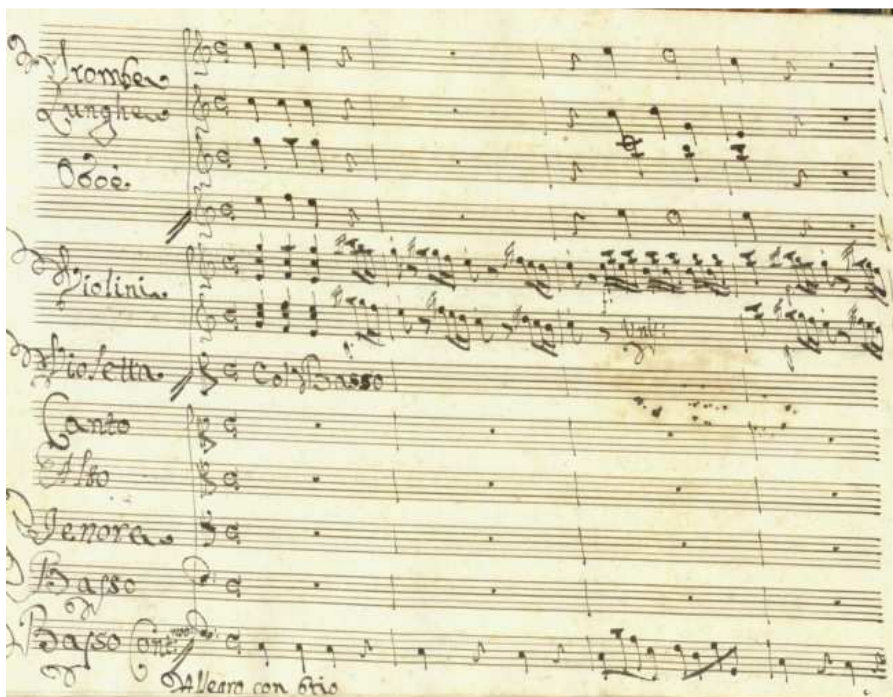 Trombe
Lunghe
Oboè
Violini
Unis:
Violetta
Col Basso
Canto
Alto
Tenore
Basso
Basso Cont:
Allegro con brio